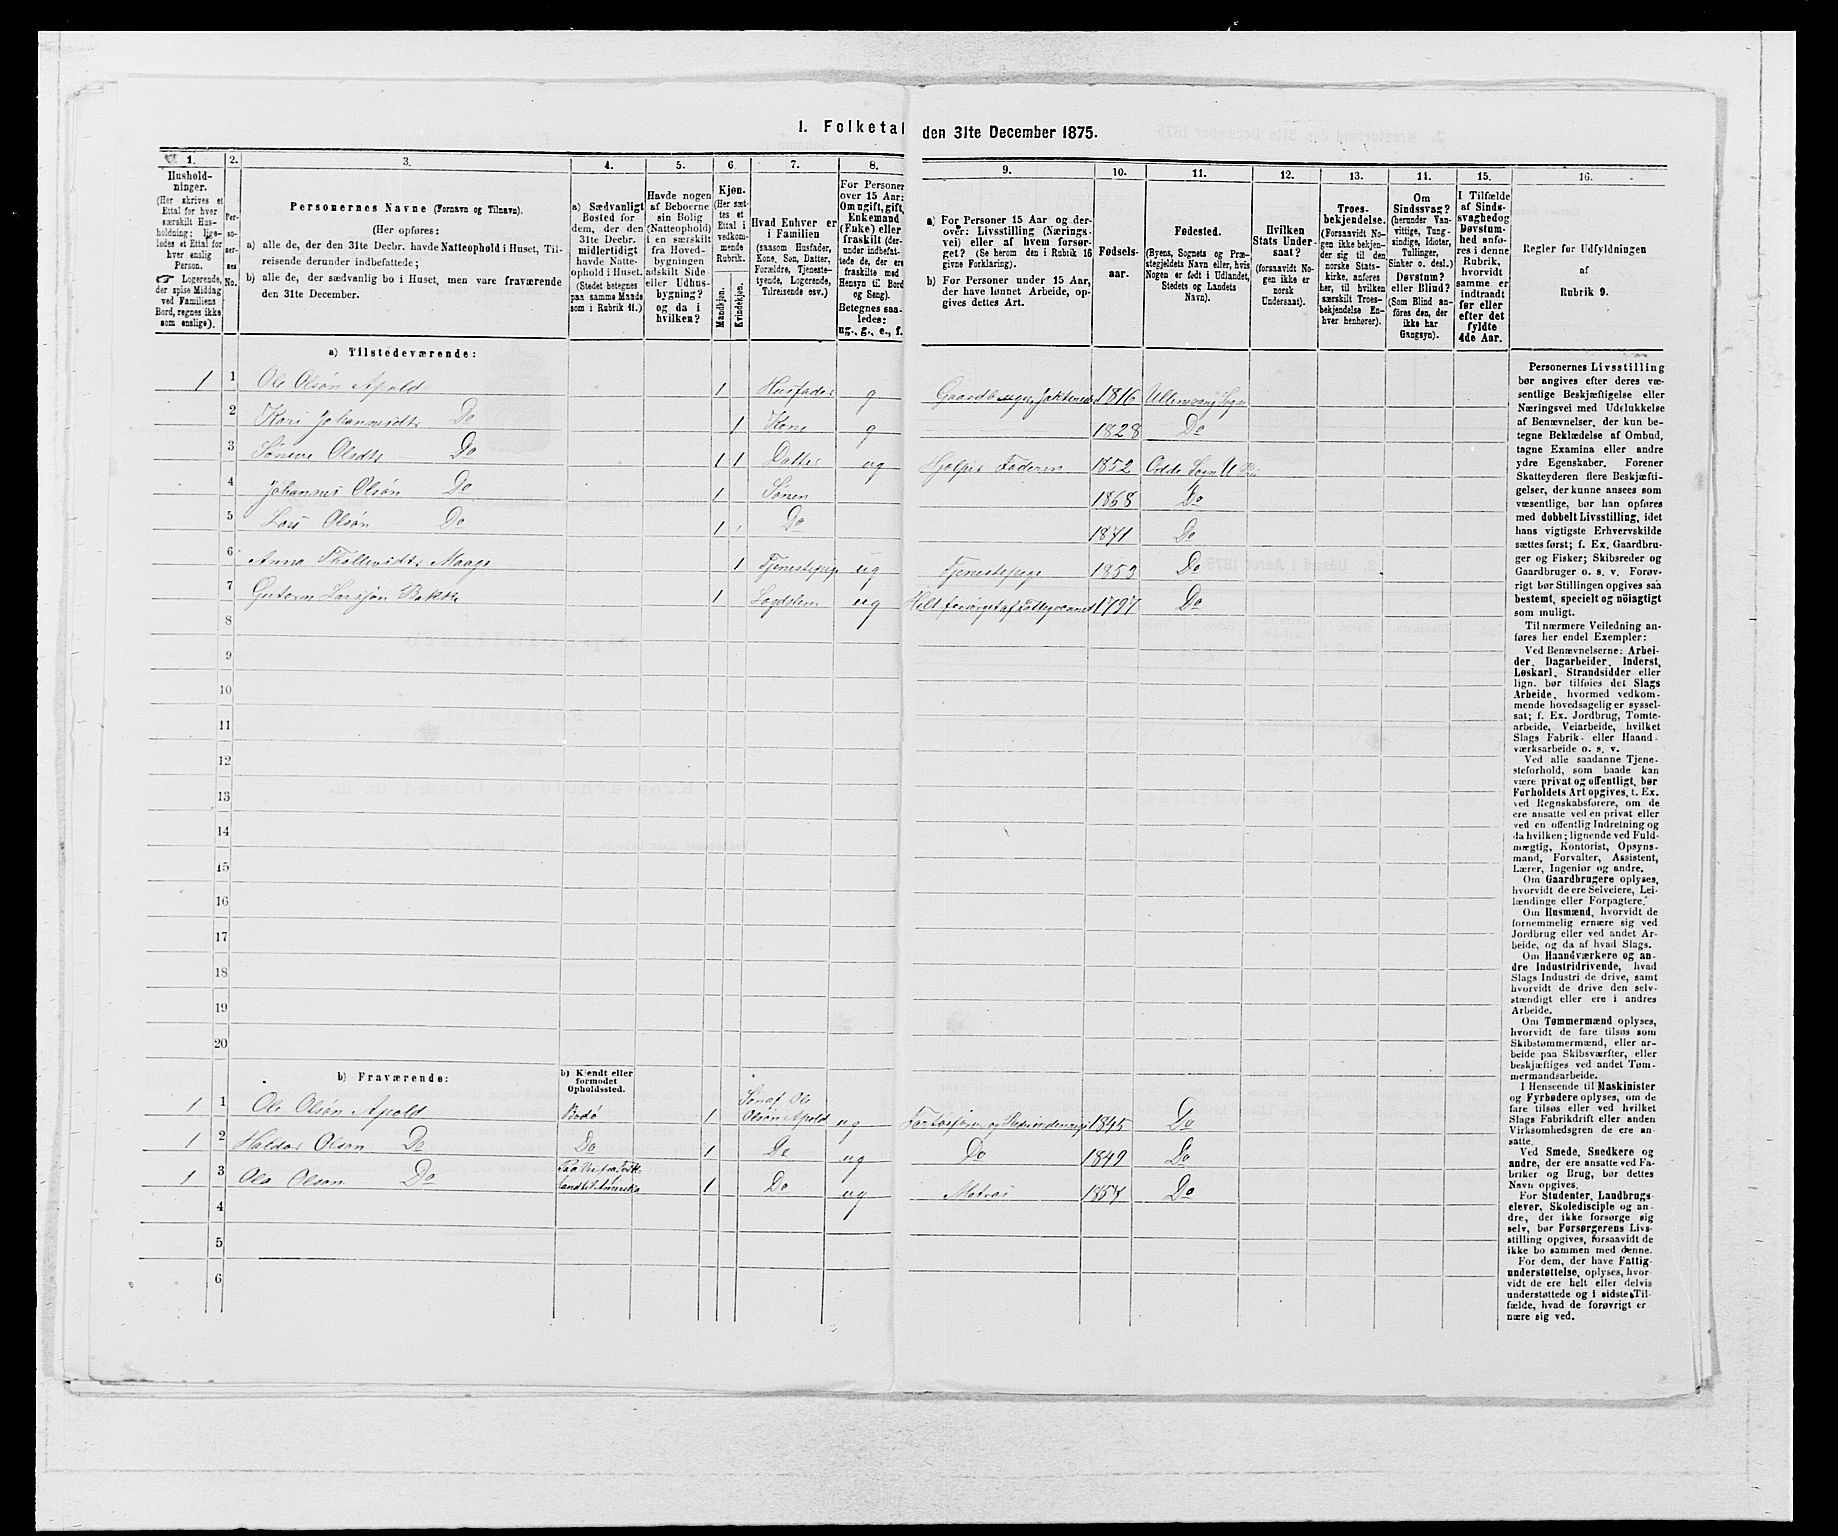 1. Folketal den 31te December 1875.
1.
Hushold-
ninger.
(Her skrives et
Ettal for hver
særskilt Hus-
holdning; lige-
ledes et Ettal for
hver enslig
Person.
☞ Logerende,
der spise Middag
ved Familiens
Bord, regnes ikke
som enslige).
2.
Per-
so-
ner-
nes
No.
3.
Personernes Navne (Fornavn og Tilnavn).
(Her opføres:
a) alle de, der den 31te Decbr. havde Natteophold i Huset, Til-
reisende derunder indbefattede;
b) alle de, der sædvanlig bo i Huset, men vare fraværende
den 31te December.
4.
a) Sædvanligt
Bosted for
dem, der den
31te Decbr.
midlertidigt
havde Natte-
ophold i Huset.
(Stedet betegnes
paa samme Maade
som i Rubrik 11.)
5.
Havde nogen
af Beboerne
sin Bolig
(Natteophold)
i en særskilt
fra Hoved-
bygningen
adskilt Side
eller Udhus-
bygning?
og da i
hvilken?
6.
Kjøn.
(Her sæt-
tes et
Ettal i
vedkom-
mende
Rubrik.
Mandkjøn.
Kvindekjøn.
7.
Hvad Enhver er
i Familien
(saasom Husfader,
Kone, Søn, Datter,
Forældre, Tjeneste-
tyende, Logerende,
Tilreisende osv.)
8.
For Personer
over 15 Aar:
Om ugift, gift,
Enkemand
(Enke) eller
fraskilt (der-
under indbefat-
tede de, der ere
fraskilte med
Hensyn til Bord
og Seng).
Betegnes saa-
ledes:
ug., g., e., f.
9.
a) For Personer 15 Aar og der-
over: Livsstilling (Nærings-
vei) eller af hvem forsør-
get? (Se herom den i Rubrik 16
givne Forklaring).
b) For Personer under 15 Aar,
der have lønnet Arbeide, op-
gives dettes Art.
10.
Fødsels-
aar.
11.
Fødested.
(Byens, Sognets og Præ-
stegjeldets Navn eller, hvis
Nogen er født i Udlandet,
Stedets og Landets
Navn).
12.
Hvilken
Stats Under-
saat?
(forsaavidt No-
gen ikke er
norsk
Undersaat).
13.
Troes-
bekjendelse.
(Forsaavidt No-
gen ikke bekjen-
der sig til den
norske Stats-
kirke, anføres
her, til hvilken
særskilt Troes-
bekjendelse En-
hver henhører).
14.
Om
Sindssvag?
(herunder Van-
vittige, Tung-
sindige, Idioter,
Tullinger,
Sinker o. desl.)
Døvstum?
eller Blind?
(Som Blind an-
føres den, der
ikke har
Gangsyn).
15.
I Tilfælde
af Sinds-
svaghed og
Døvstum-
hed anfø-
res i denne
Rubrik,
hvorvidt
samme er
indtraadt
før eller
efter det
fyldte
4de Aar.
16.
Regler før Udfyldningen
af
Rubrik 9.
a) Tilstedeværende:
1 1 Ole Olsøn Apold 1 Husfader g Gaardbruger, 1816 Ullensvang Sogn
2 Kari Johannesdtr Do 1 Kone g 1828 Do
3 Olsdtr Do 1 1 Datter ug Hjelper Faderen 1852 Odde Sogn
4 Johannes Olsøn Do 1 Sønen 1868 Do
5 Lars Olsøn Do 1 Do 1871 Do
6 Anna Maage 1 Tjenestepige ug Tjenestepige 1853 Do
7 Gutorm Larssøn Bakke 1 Lægdslem ug Helt forsørget af Fattigvæsenet 1797 Do
8
9
10
11
12
13
14
15
16
17
18
19
20
b) Fraværende:
b) Kjendt eller
formodet
Opholdssted.
1 1 Ole Olsøn Apold Bodø 1 Søn af Ole Olsøn Apold ug 1845 Do
1 2 Haldor Olson Do Do 1 Do ug Do 1849 Do
1 3 Ola Olson Do Paa Reise fra land til Amerika 1 Do ug Matros 1857 Do
4
5
6
Personernes Livsstilling
bør angives efter deres væ-
sentlige Beskjæftigelse eller
Næringsvei med Udelukkelse
af Benævnelser, der kun be-
tegne Beklædelse af Ombud,
tagne Examina eller andre
ydre Egenskaber. Forener
Skatteyderen flere Beskjæfti-
gelser, der kunne ansees som
væsentlige, bør han opføres
med dobbelt Livsstilling, idet
hans vigtigste Erhvervskilde
sættes først; f. Ex. Gaardbru-
ger og Fisker; Skibsreder og
Gaardbruger o. s. v. Forøv-
rigt bør Stillingen opgives saa
bestemt, specielt og nöiagtigt
som muligt.
Til nærmere Veiledning an-
føres her endel Exempler:
Ved Benævnelserne: Arbei-
der, Dagarbeider, Inderst,
Løskarl, Strandsidder eller
lign. bør tilføies det Slags
Arbeide, hvormed vedkom-
mende hovedsagelig er syssel-
sat; f. Ex. Jordbrug, Tomte-
arbeide, Veiarbeide, hvilket
Slags Fabrik- eller Haand-
værksarbeide o. s. v.
Ved alle saadanne Tjene-
steforhold, som baade kan
være privat og offentligt, bør
Forholdets Art opgives, t. Ex.
ved Regnskabsførere, om de
ere ansatte ved en privat eller
ved en offentlig Indretning og
da hvilken; lignende ved Fuld-
mægtig, Kontorist, Opsyns-
mand, Forvalter, Assistent,
Lærer, Ingeniør og andre.
Om Gaardbrugere oplyses,
hvorvidt de ere Selveiere, Lei-
lændinge eller Forpagtere.
Om Husmænd, hvorvidt de
fornemmelig ernære sig ved
Jordbrug eller ved andet Ar-
beide, og da af hvad Slags.
Om Haandværkere og an-
dre Industridrivende, hvad
Slags Industri de drive, samt
hvorvidt de drive den selv-
stændigt eller ere i andres
Arbeide.
Om Tømmermænd oplyses,
hvorvidt de fare tilsøs som
Skibstømmermænd, eller ar-
beide paa Skibsværfter, eller
beskjæftiges ved andet Tøm-
mermandsarbeide.
I Henseende til Maskinister
og Fyrbødere oplyses, om de
fare tilsøs eller ved hvilket
Slags Fabrikdrift eller anden
Virksomhedsgren de ere an-
satte.
Ved Smede, Snedkere og
andre, der ere ansatte ved Fa-
briker og Brug, bør dettes
Navn opgives.
For Studenter, Landbrugs-
elever, Skoledisciple og an-
dre, der ikke forsørge sig
selv, bør Forsørgerens Livs-
stilling opgives, forsaavidt de
ikke bo sammen med denne.
For dem, der have Fattig-
understøttelse, oplyses, hvor-
vidt de ere helt eller delvis
understøttede og i sidste Til-
fælde, hvad de forøvrigt er
nære sig ved.